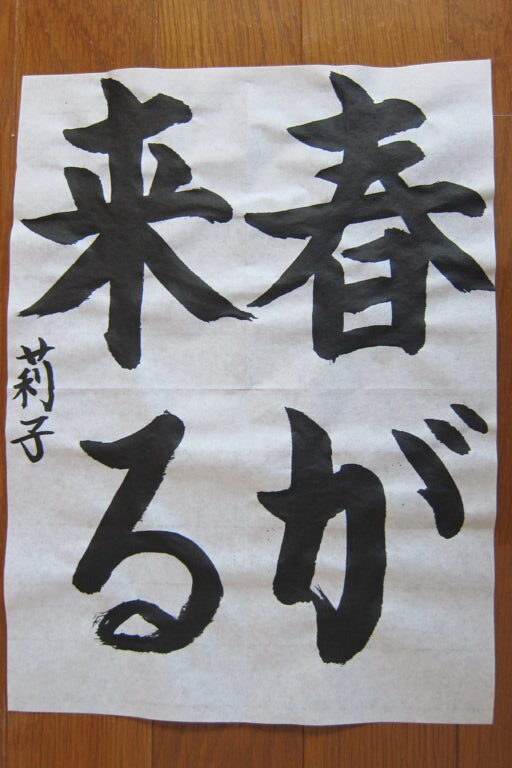 春が
来る
莉子